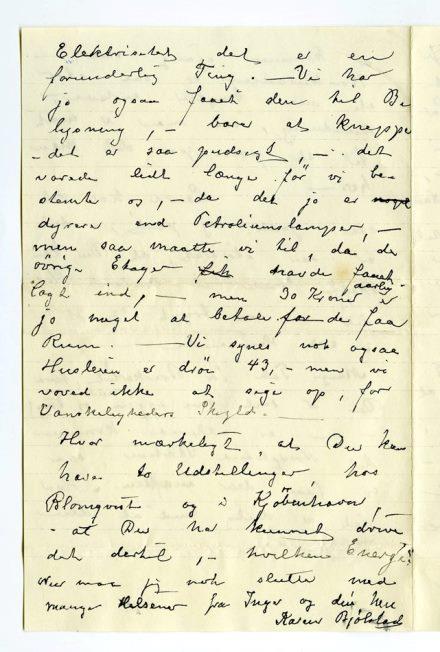 Elektrisitet det er en
forunderlig Ting. — Vi har
jo ogsaa faaet den til Be
lysning, — bare at kneppe
— det er saa pudsegt, — det
varede lidt længe før vi be-
stemte os, — da det jo er noget
dyrere end Petroliumslamper, —
men saa maatte vi til, da de
øvrige Etager havde faaet
lagt ind, — men 30 Kroner aarlig er
jo meget at betale for de faa
Rum. — Vi synes nok ogsaa
Husleien er drøi 43, — men vi
voved ikke at sige op, for
Vanskelighederes Skyld.
Hvor mærkeligt, at Du kan
have to Udstillinger, hos
Blomqvist og i Kjöbenhavn,
— at Du har kunnet drive
det dertil, — hvilken Energi!
Nu maa jeg nok slutte med
mange Helsener fra Inger og din hen
Karen Bjølstad